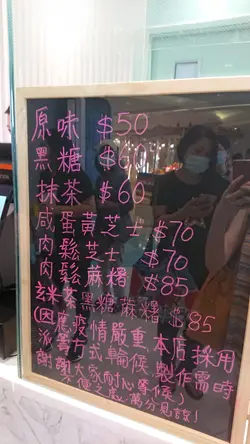 原味 $50
黑糖 $60
抹茶 $60
咸蛋黃芝士 $70
肉鬆芝士 $70
肉鬆麻糬 $85
玄米茶黑糖麻糬 $85
(因應疫情嚴重,本店採用
派籌方式輪候,製作需時
謝謝大家耐心等候)
不便之處,萬分見諒!